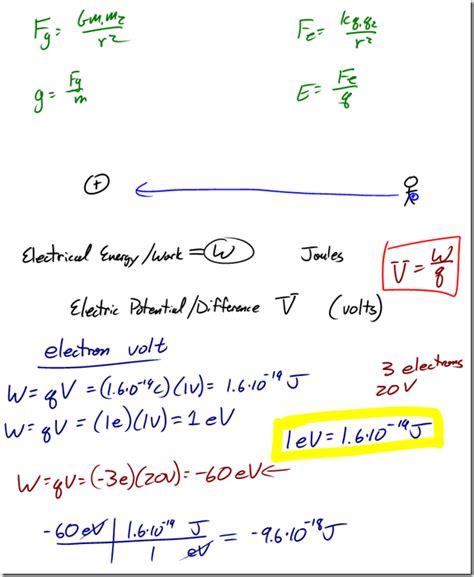 Fg = Gm₁m₂/r²
Fe = kq₁q₂/r²
g = Fg/m
E = Fe/q
+
Electrical Energy/Work = W Joules
V = W/q
Electric Potential/Difference V (volts)
electron volt
W = qV = (1.6·10⁻¹⁹C)(1V) = 1.6·10⁻¹⁹ J
W = qV = (1e)(1V) = 1 eV
3 electrons
20 V
1 eV = 1.6·10⁻¹⁹ J
W = qV = (-3e)(20V) = -60 eV ←
-60 eV | 1.6·10⁻¹⁹ J / 1 eV = -9.6·10⁻¹⁸ J